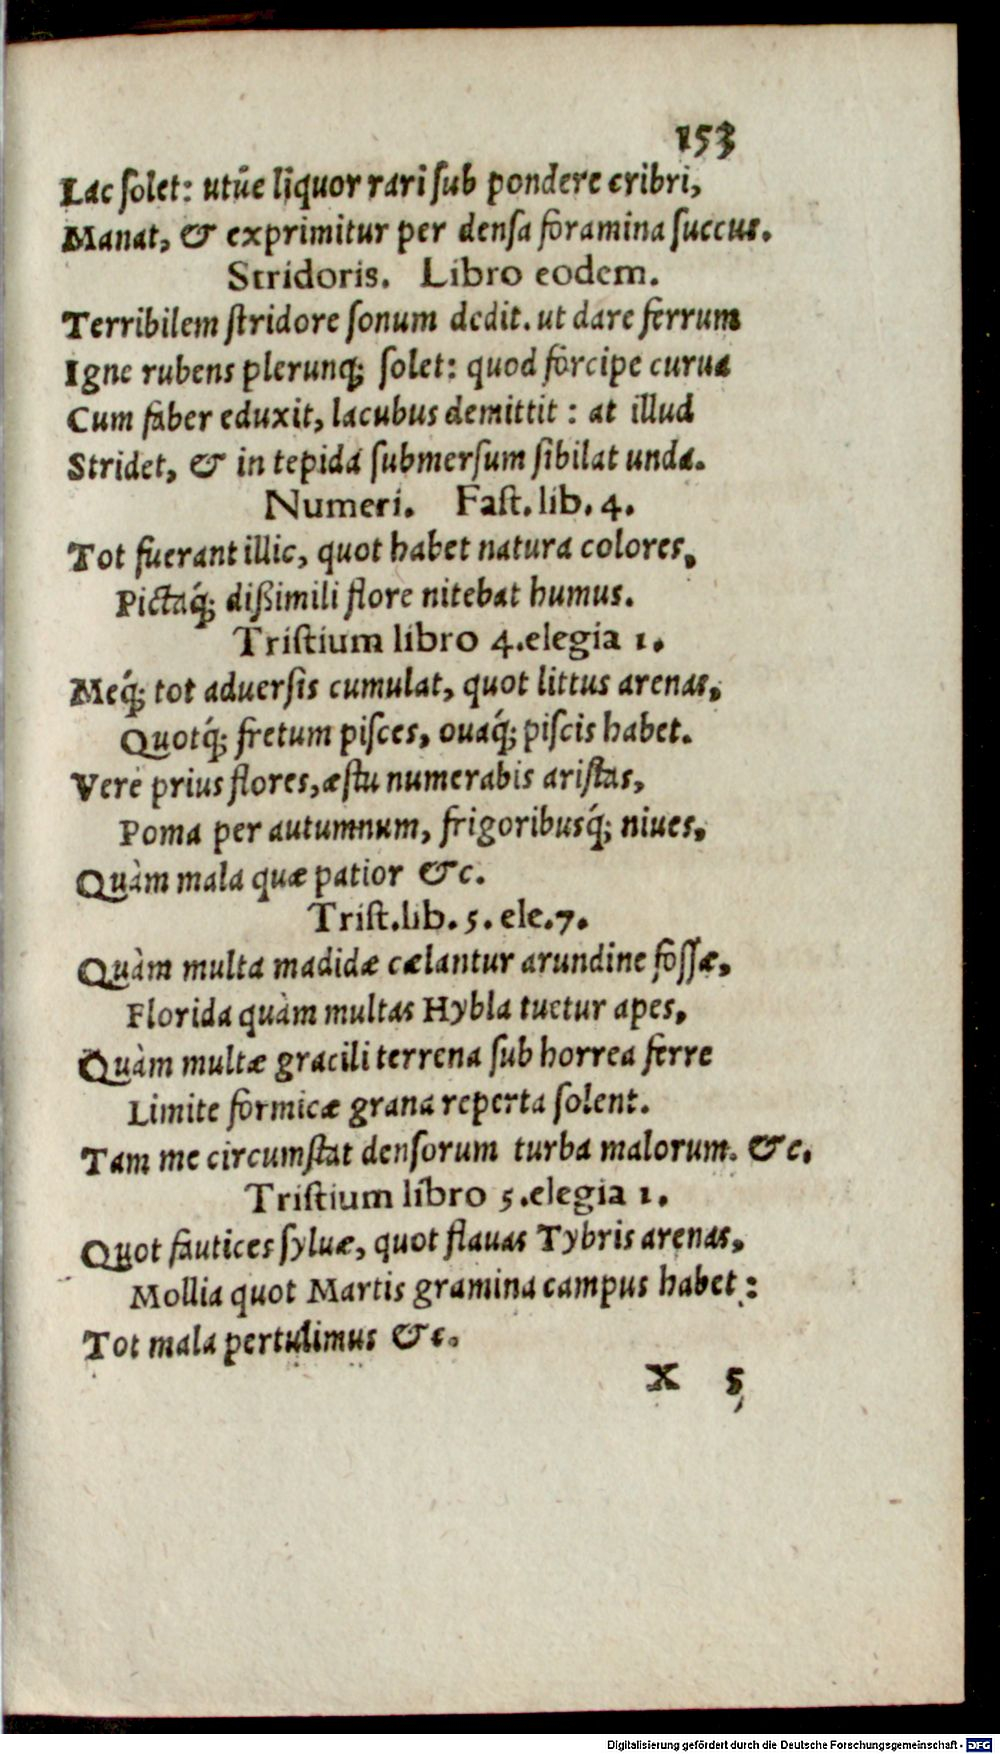 153
Lac ſolet: utúe liquor rari ſub pondere cribri,
Manat, & exprimitur per denſa foramina ſuccus.
Stridoris. Libro eodem.
Terribilem ſtridore ſonum dedit. ut dare ferrum
Igne rubens plerunq; ſolet: quod forcipe curua
Cum faber eduxit, lacubus demittit : at illud
Stridet, & in tepida ſubmerſum ſibilat unda.
Numeri. Faſt. lib. 4.
Tot fuerant illic, quot habet natura colores,
Pictaq́; dißimili flore nitebat humus.
Triſtium libro 4.elegia 1.
Meq́; tot aduerſis cumulat, quot littus arenas,
Quotq́; fretum piſces, ouaq́; piſcis habet.
Vere prius flores, æſtu numerabis ariſtas,
Poma per autumnum, frigoribusq́; niues,
Quàm mala quæ patior &c.
Triſt.lib. 5. ele.7.
Quàm multa madidæ cælantur arundine foſſæ,
Florida quàm multas Hybla tuetur apes,
Quàm multæ gracili terrena ſub horrea ferre
Limite formicæ grana reperta ſolent.
Tam me circumſtat denſorum turba malorum. &c.
Triſtium libro 5.elegia 1.
Quot fautices ſyluæ, quot flauas Tybris arenas,
Mollia quot Martis gramina campus habet :
Tot mala pertulimus &c.
X 5
Digitalisierung gefördert durch die Deutsche Forschungsgemeinschaft - DFG